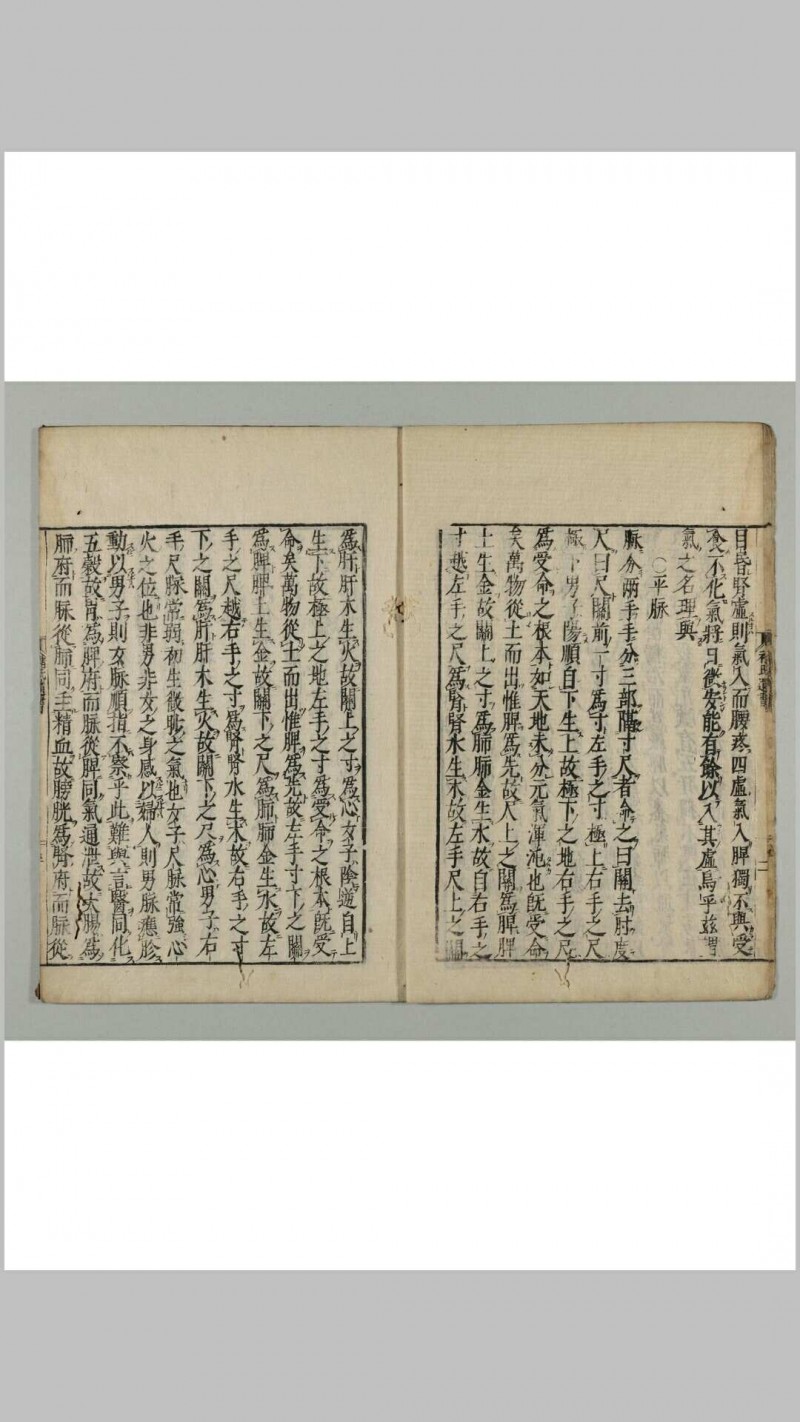 目昏腎虛則氣入而腰疼四虛氣入脾獨不與受
食不化氣將日微安能有餘以入其虛烏乎茲謂
氣之名理與
○平脉
脉分兩手手分三部隔寸尺者命之曰關去肘度
尺曰尺關前一寸爲寸左手之寸極上右手之尺
極下男子陽順自下生上故極下之地右手之尺
爲受命之根本如天地未分元氣渾沌也既受命
矣萬物從土而出惟脾爲先故尺上之關爲脾脾
土生金故關上之寸爲肺肺金生水故自右手之
寸越左手之尺爲腎腎水生木故左手尺上之關
爲肝肝木生火故關上之寸爲心女子陰逆自上
生下故極上之地左手之寸爲受命之根本既受
命矣萬物從土而出惟脾爲先故左手寸下之關
爲脾脾土生金故關下之尺爲肺肺金生水故左
手之尺越右手之寸爲腎腎水生木故右手之寸
下之關爲肝肝木生火故關下之尺爲心男子右
手尺脉常弱初生微眇之氣也女子尺脉常強心
火之位也非男非女之身感以婦人則男脉應胗
動以男子則女脉順指不察乎此難與言醫同化
五穀故胃爲脾府而脉從脾同氣通泄故大腸爲
肺府而脉從肺同主精血故膀胱爲腎府而脉從